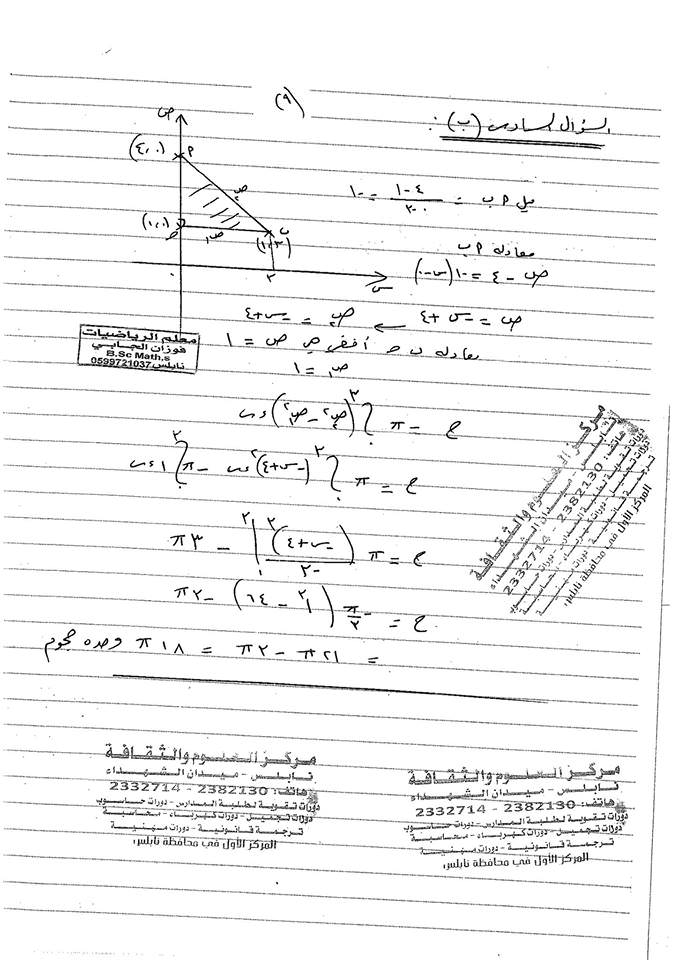 (٩)
السؤال السادس (ب) :
ص
(٤،٠) م
(١،٠) حـ
ص٢
ص١
ب
(١،٣)
٣
س
ميل م ب = ٤-١ / ٠-٣ = -١
معادلة م ب
ص - ٤ = -١(س - ٠)
ص = -س + ٤ ← ص٢ = -س + ٤
معادلة ب حـ أفقي هي ص = ١
ص١ = ١
معلم الرياضيات
فوزات الجابي
B.Sc Math.s
نابلس 0599721037
ح = π ∫ (ص٢² - ص١²) ءس
ح = π ∫ (-س+٤)² ءس - π ∫ ١ ءس
ح = π (-س+٤)³ / -٣ | - π٣
ح = -π/٣ (١ - ٦٤) - π٣
= π٢١ - π٣ = π١٨ وحدة حجوم
مركز العلوم والثقافة
نابلس - ميدان الشهداء
هاتف: 2382130 - 2332714
دورات تقوية لطلبة المدارس - دورات حاسوب
دورات تجميل - دورات كهرباء - محاسبة
ترجمة قانونية - دورات مهنية
المركز الأول في محافظة نابلس
مركز العلوم والثقافة
نابلس - ميدان الشهداء
هاتف: 2382130 - 2332714
دورات تقوية لطلبة المدارس - دورات حاسوب
دورات تجميل - دورات كهرباء - محاسبة
ترجمة قانونية - دورات مهنية
المركز الأول في محافظة نابلس
مركز العلوم والثقافة
نابلس - ميدان الشهداء
هاتف: 2382130 - 2332714
دورات تقوية لطلبة المدارس - دورات حاسوب
دورات تجميل - دورات كهرباء - محاسبة
ترجمة قانونية - دورات مهنية
المركز الأول في محافظة نابلس